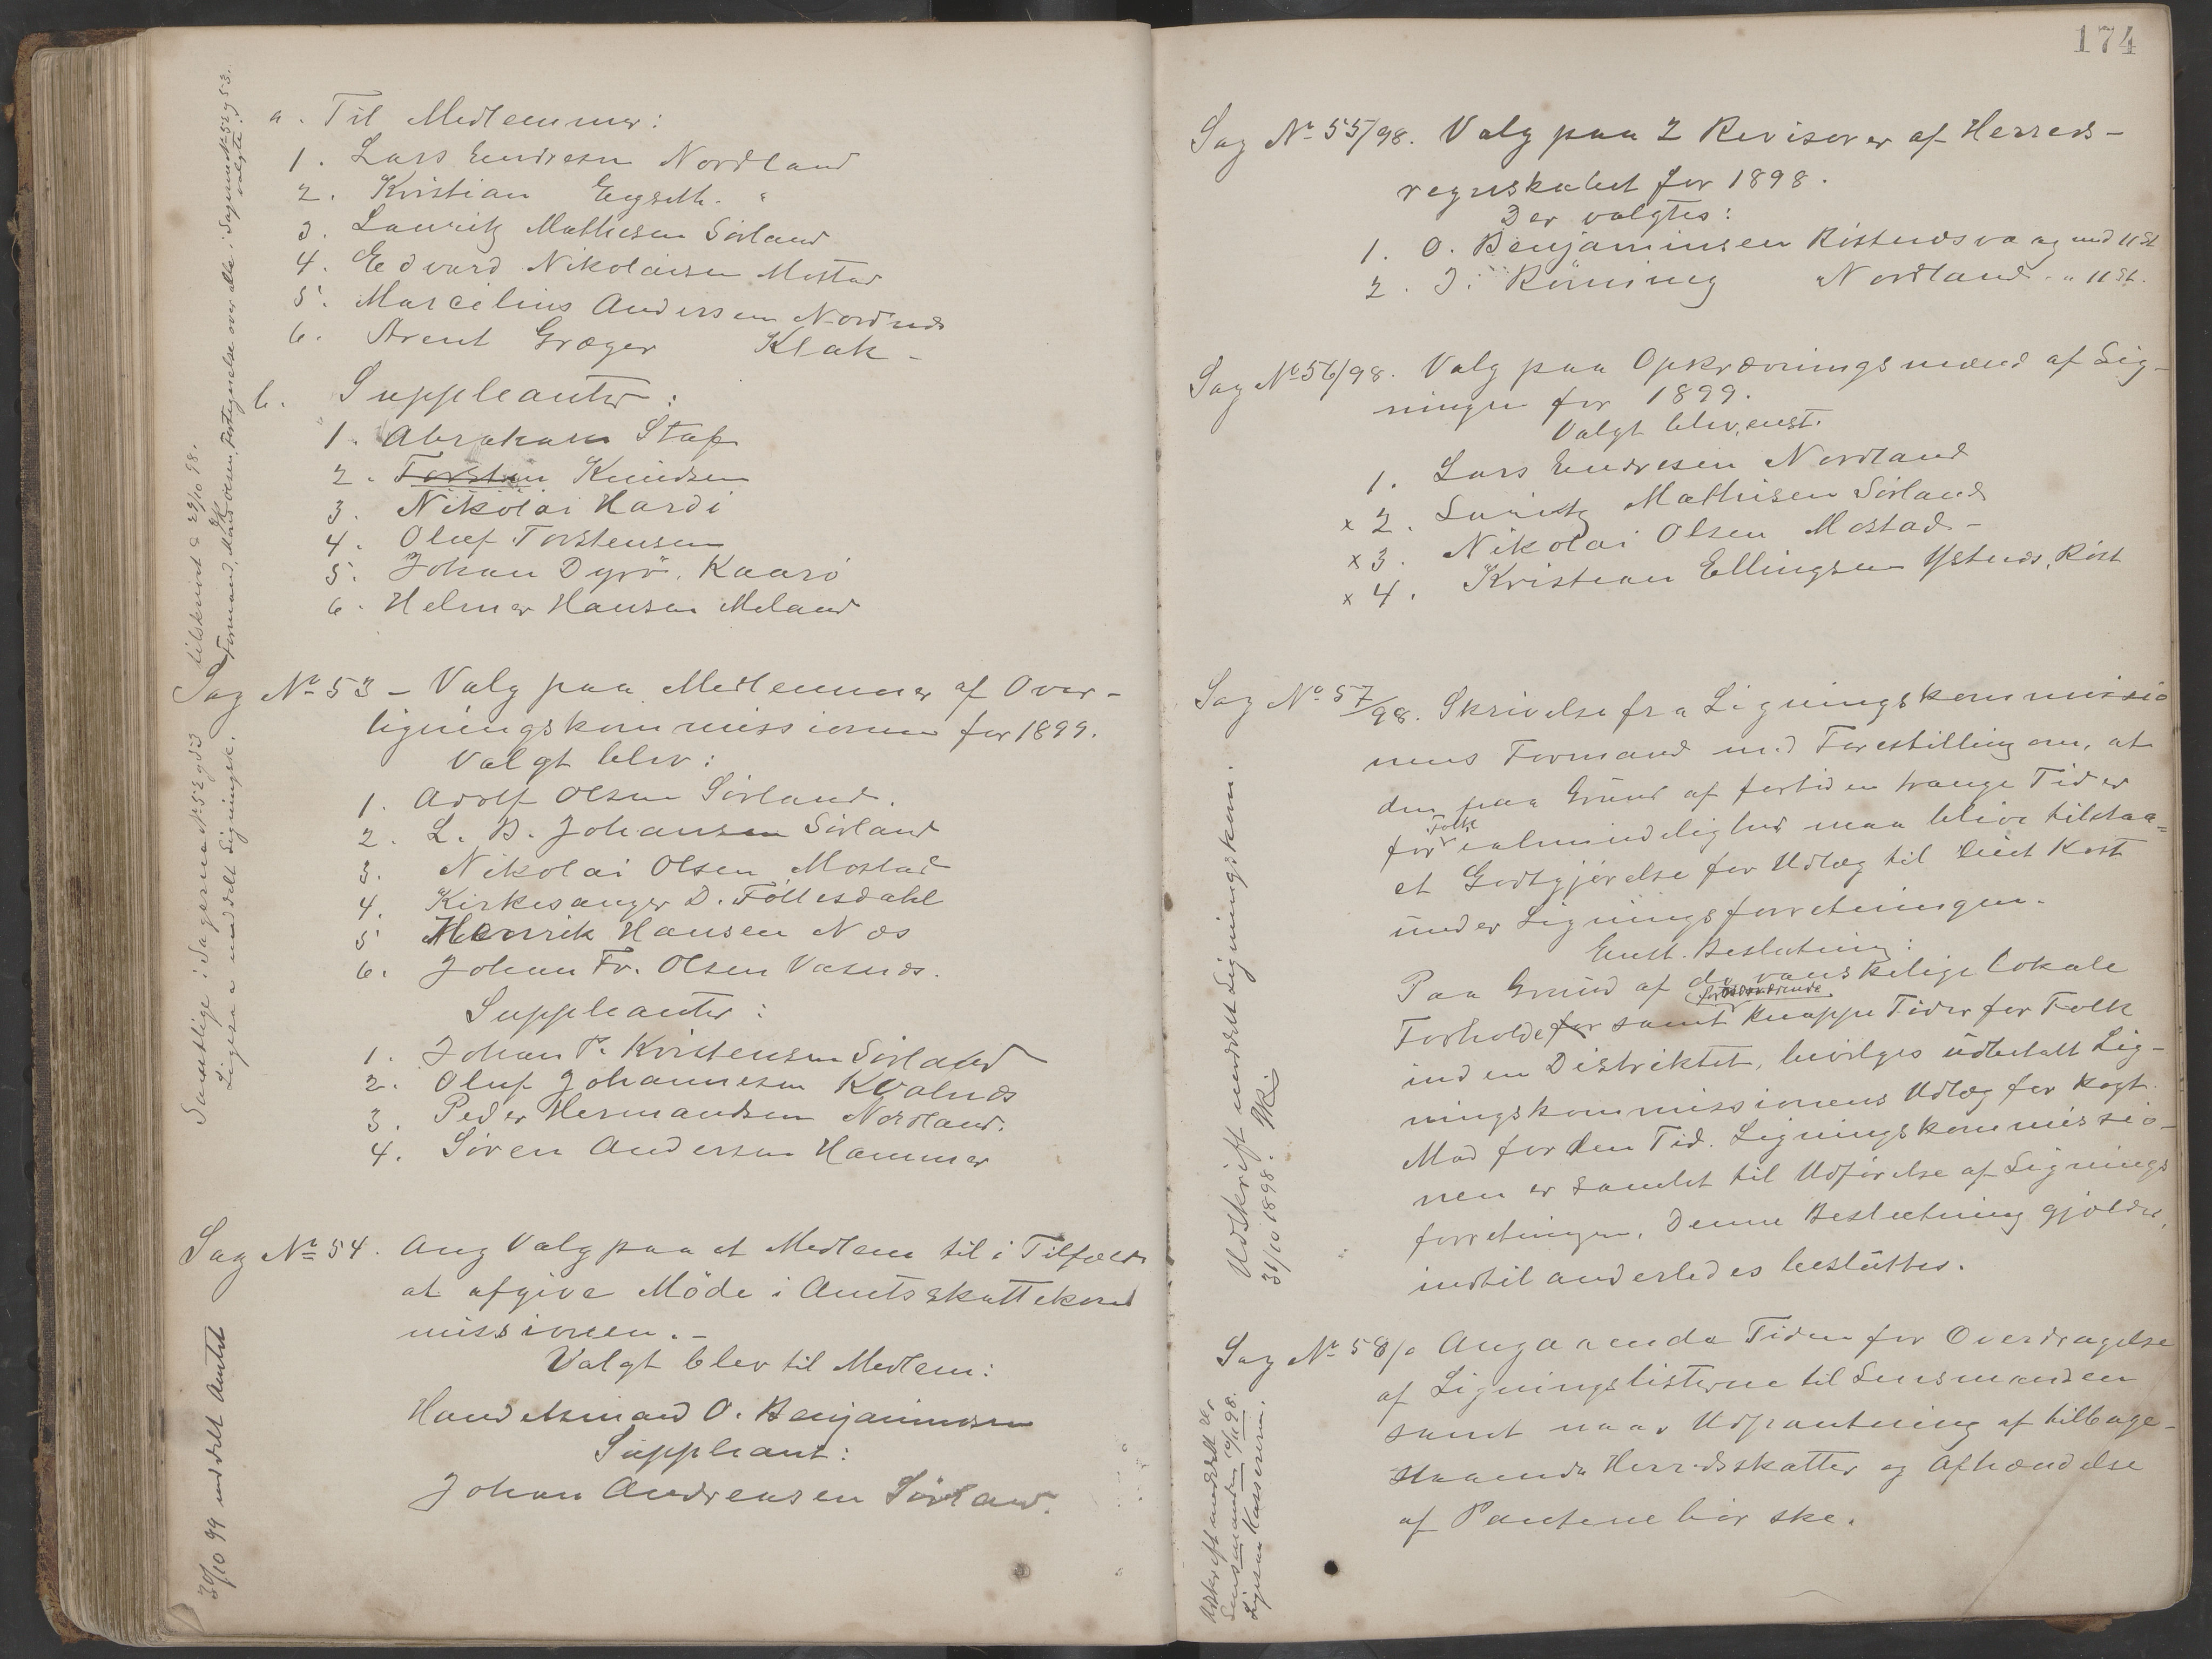 a. Til Medlemmer:
1. Lars Endresen Nordland
2. Kristian Engseth. "
3. Lauritz Mathisen Sörland
4. Edvard Nikolaisen Mostad
5. Marcelius Andersen Nordnæs
6. Arent Græger Klak -
b. Suppleanter:
1. Abraham Stap
2. Torsten Knudsen
3. Nikolai Hardi
4. Oluf Torstensen
5. Johan Dyrö, Kaarö
6. Helmer Hansen Meland
Sag No 53 - Valg paa Medlemmer af Over-
ligningskommissionen for 1899.
Valgt blev:
1. Adolf Olsen Sörland.
2. L. B. Johansen Sörland
3. Nikolai Olsen Mostad
4. Kirkesanger D. Föllesdahl
5. Henrik Hansen Næs
6. Johan Fr. Olsen Vasnæs.
Suppleanter:
1. Johan P. Kristensen Sörland
2. Oluf Johannesen Kvalnæs
3. Peder Hermandsen Nordland.
4. Sören Andersen Hammer
Sag No 54. Ang Valg paa et Medlem til i Tilfælde
at afgive Möde i Amtsskattekom
missionen. -
Valgt blev til Medlem:
Handelsmand O. Benjaminsen
Suppleant:
Johan Andreasen Sörland.
tilskrevet d 29/10 98.
Samtlige i Sagerne No 52 og 53
Formand, Mand Olsen, Fortegnelse over alle i Sagerne No 52 og 53.
valgte.
Ligesa meddelt Ligningsk.
30/10 99 meddelt Amtet
174
Sag No 55/98. Valg paa 2 Revisorer af Herreds-
regnskabet for 1898.
Der valgtes:
1. O. Benjaminsen Röstnæsvaag med 11 St
2. J. Röning Nordland " 11 St.
Sag No 56/98. Valg paa Opkrævningsmænd af Lig-
ningen for 1899.
Valgt blev, enst.
1. Lars Endresen Nordland
x 2. Lauritz Mathisen Sörland
x 3. Nikolai Olsen Mostad -
x 4. Kristian Ellingsen Ystnæs, Röst
Sag No 57/98. Skrivelse fra Ligningskommissio
nens Formand med Forestilling om, at
den paa Grund af fortiden trange Tider
for Folk i almindelighed maa blive tilstaa=
et Godtgjörelse for Udlæg til Kost
under Ligningsforretningen.
Enst. Beslutning:
Paa Grund af de vanskelige lokale
Forholde for samt forværende knappe Tider for Folk
inden Distriktet, bevilges udbetalt Lig-
ningskommissionens Udlæg for kogt
Mad for den Tid. Ligningskommissio-
nen er samlet til Udförelse af Lignings
forretningen. Denne Beslutning gjælder,
indtil anderledes besluttes.
Udskrift meddelt Ligningskom.
31/10 1898.
Sag No 58/ Angaaende Tiden for Overdragelse
af Ligningslisterne til Lensmanden
samt naar Udpantning af tilbage-
staaende Herredsskatter og Afhændelse
af Pantene bör ske.
Udskrift meddelt
Lensmanden 10/11 98.
Ligesaa Kassereren.